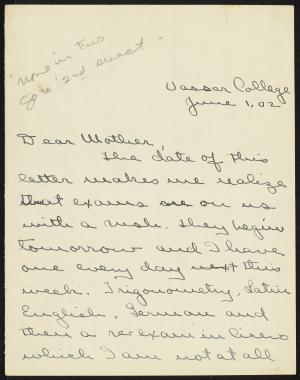 "None in this
Go to 2nd sheet"
Vassar College
June 1, 02
Dear Mother,
The date of this
letter makes me realize
that exams are on us
with a rush. They begin
tomorrow and I have
one every day next this
week. Trigonometry, Latin
English, German and
then a re-exam in Cicero
which I am not at all